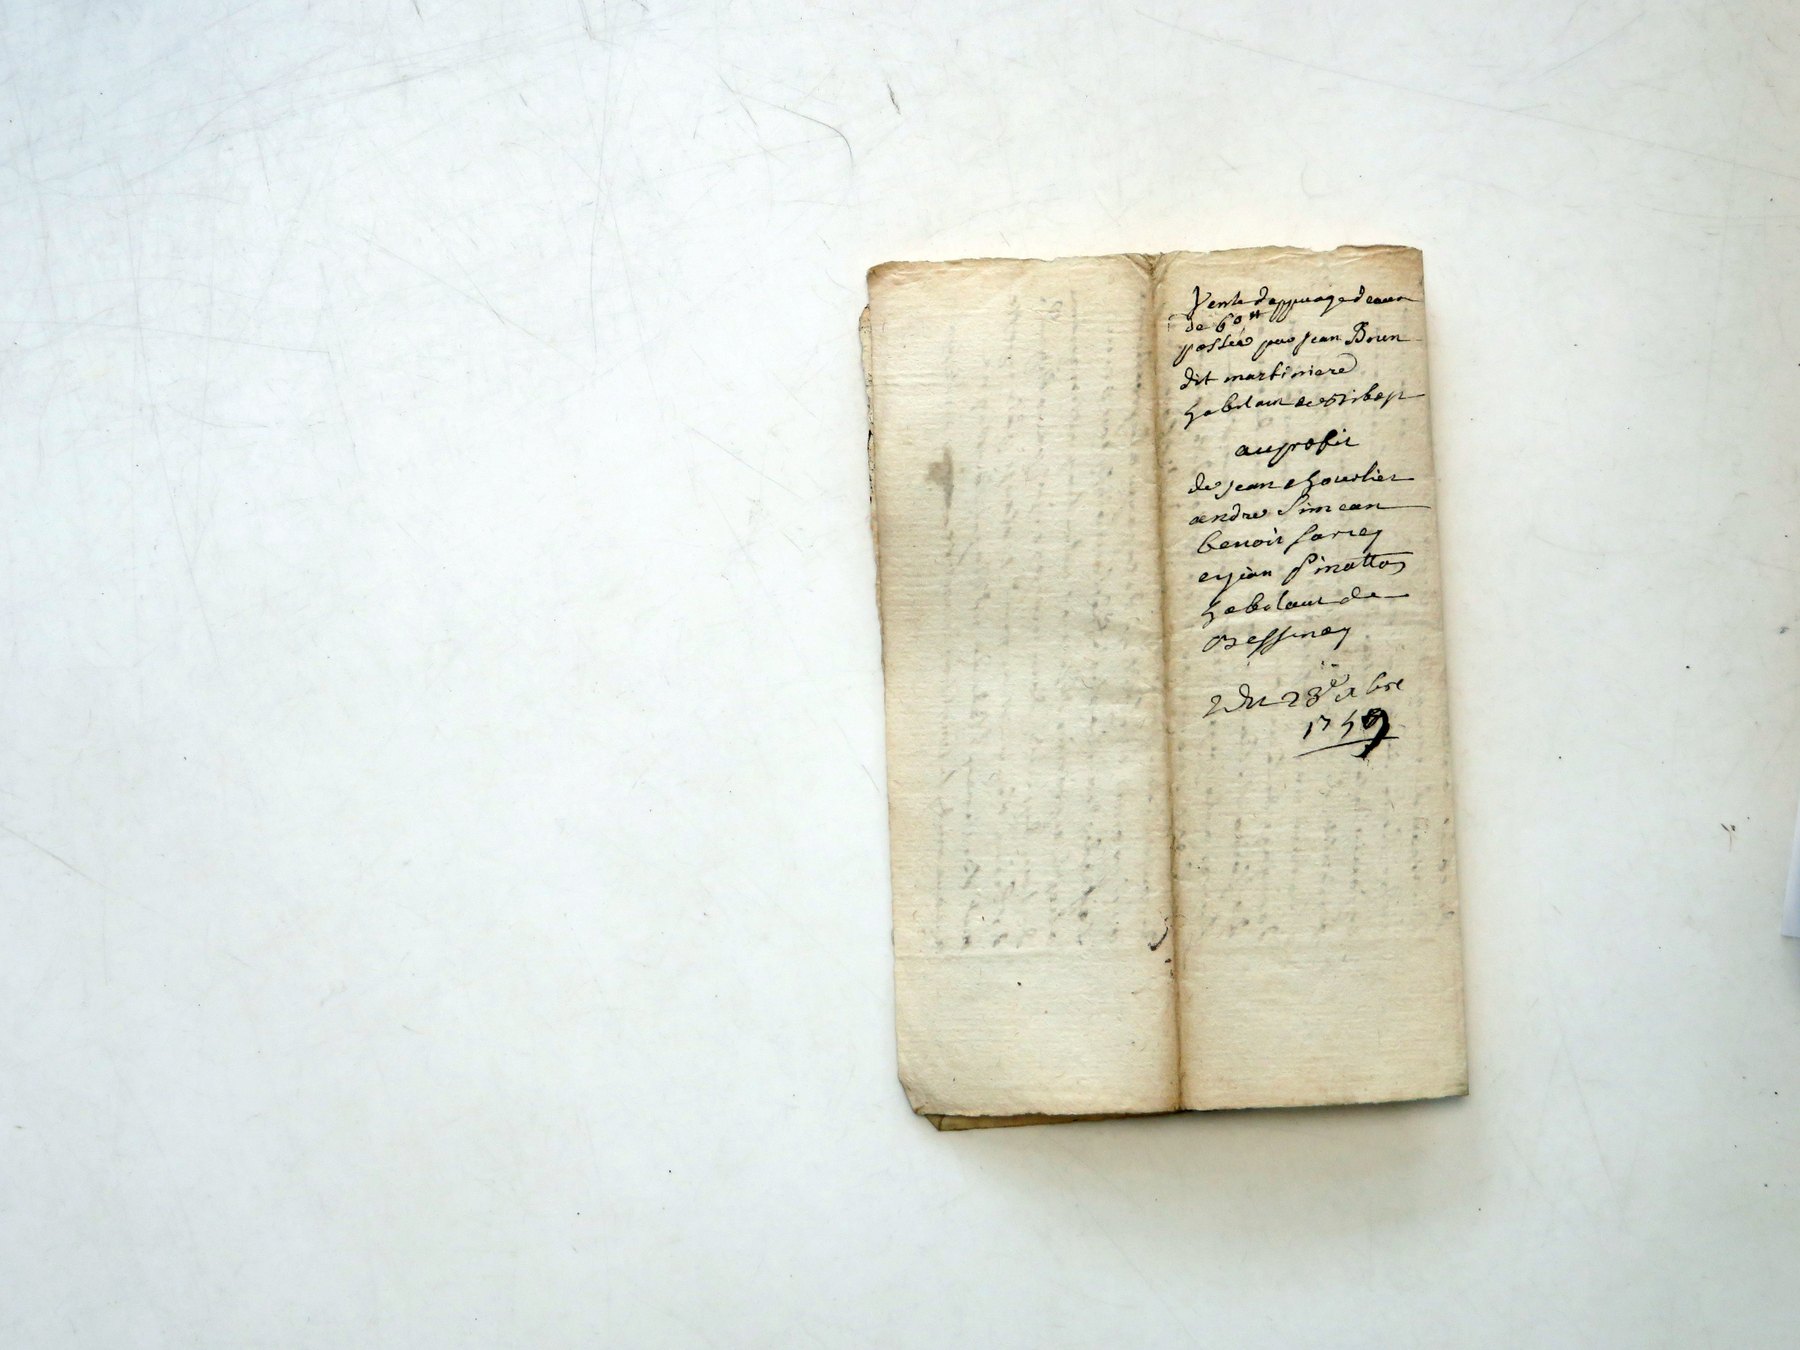 Vente d'appuage d'eaux
de 60 ₶
passée par jean Brun
dit martiniere
habitant de Bibost
au profit
de jean
andre Simean
benoit Farrey
et jean Pinatton
habitant de
Bessenay
Du 23e bre